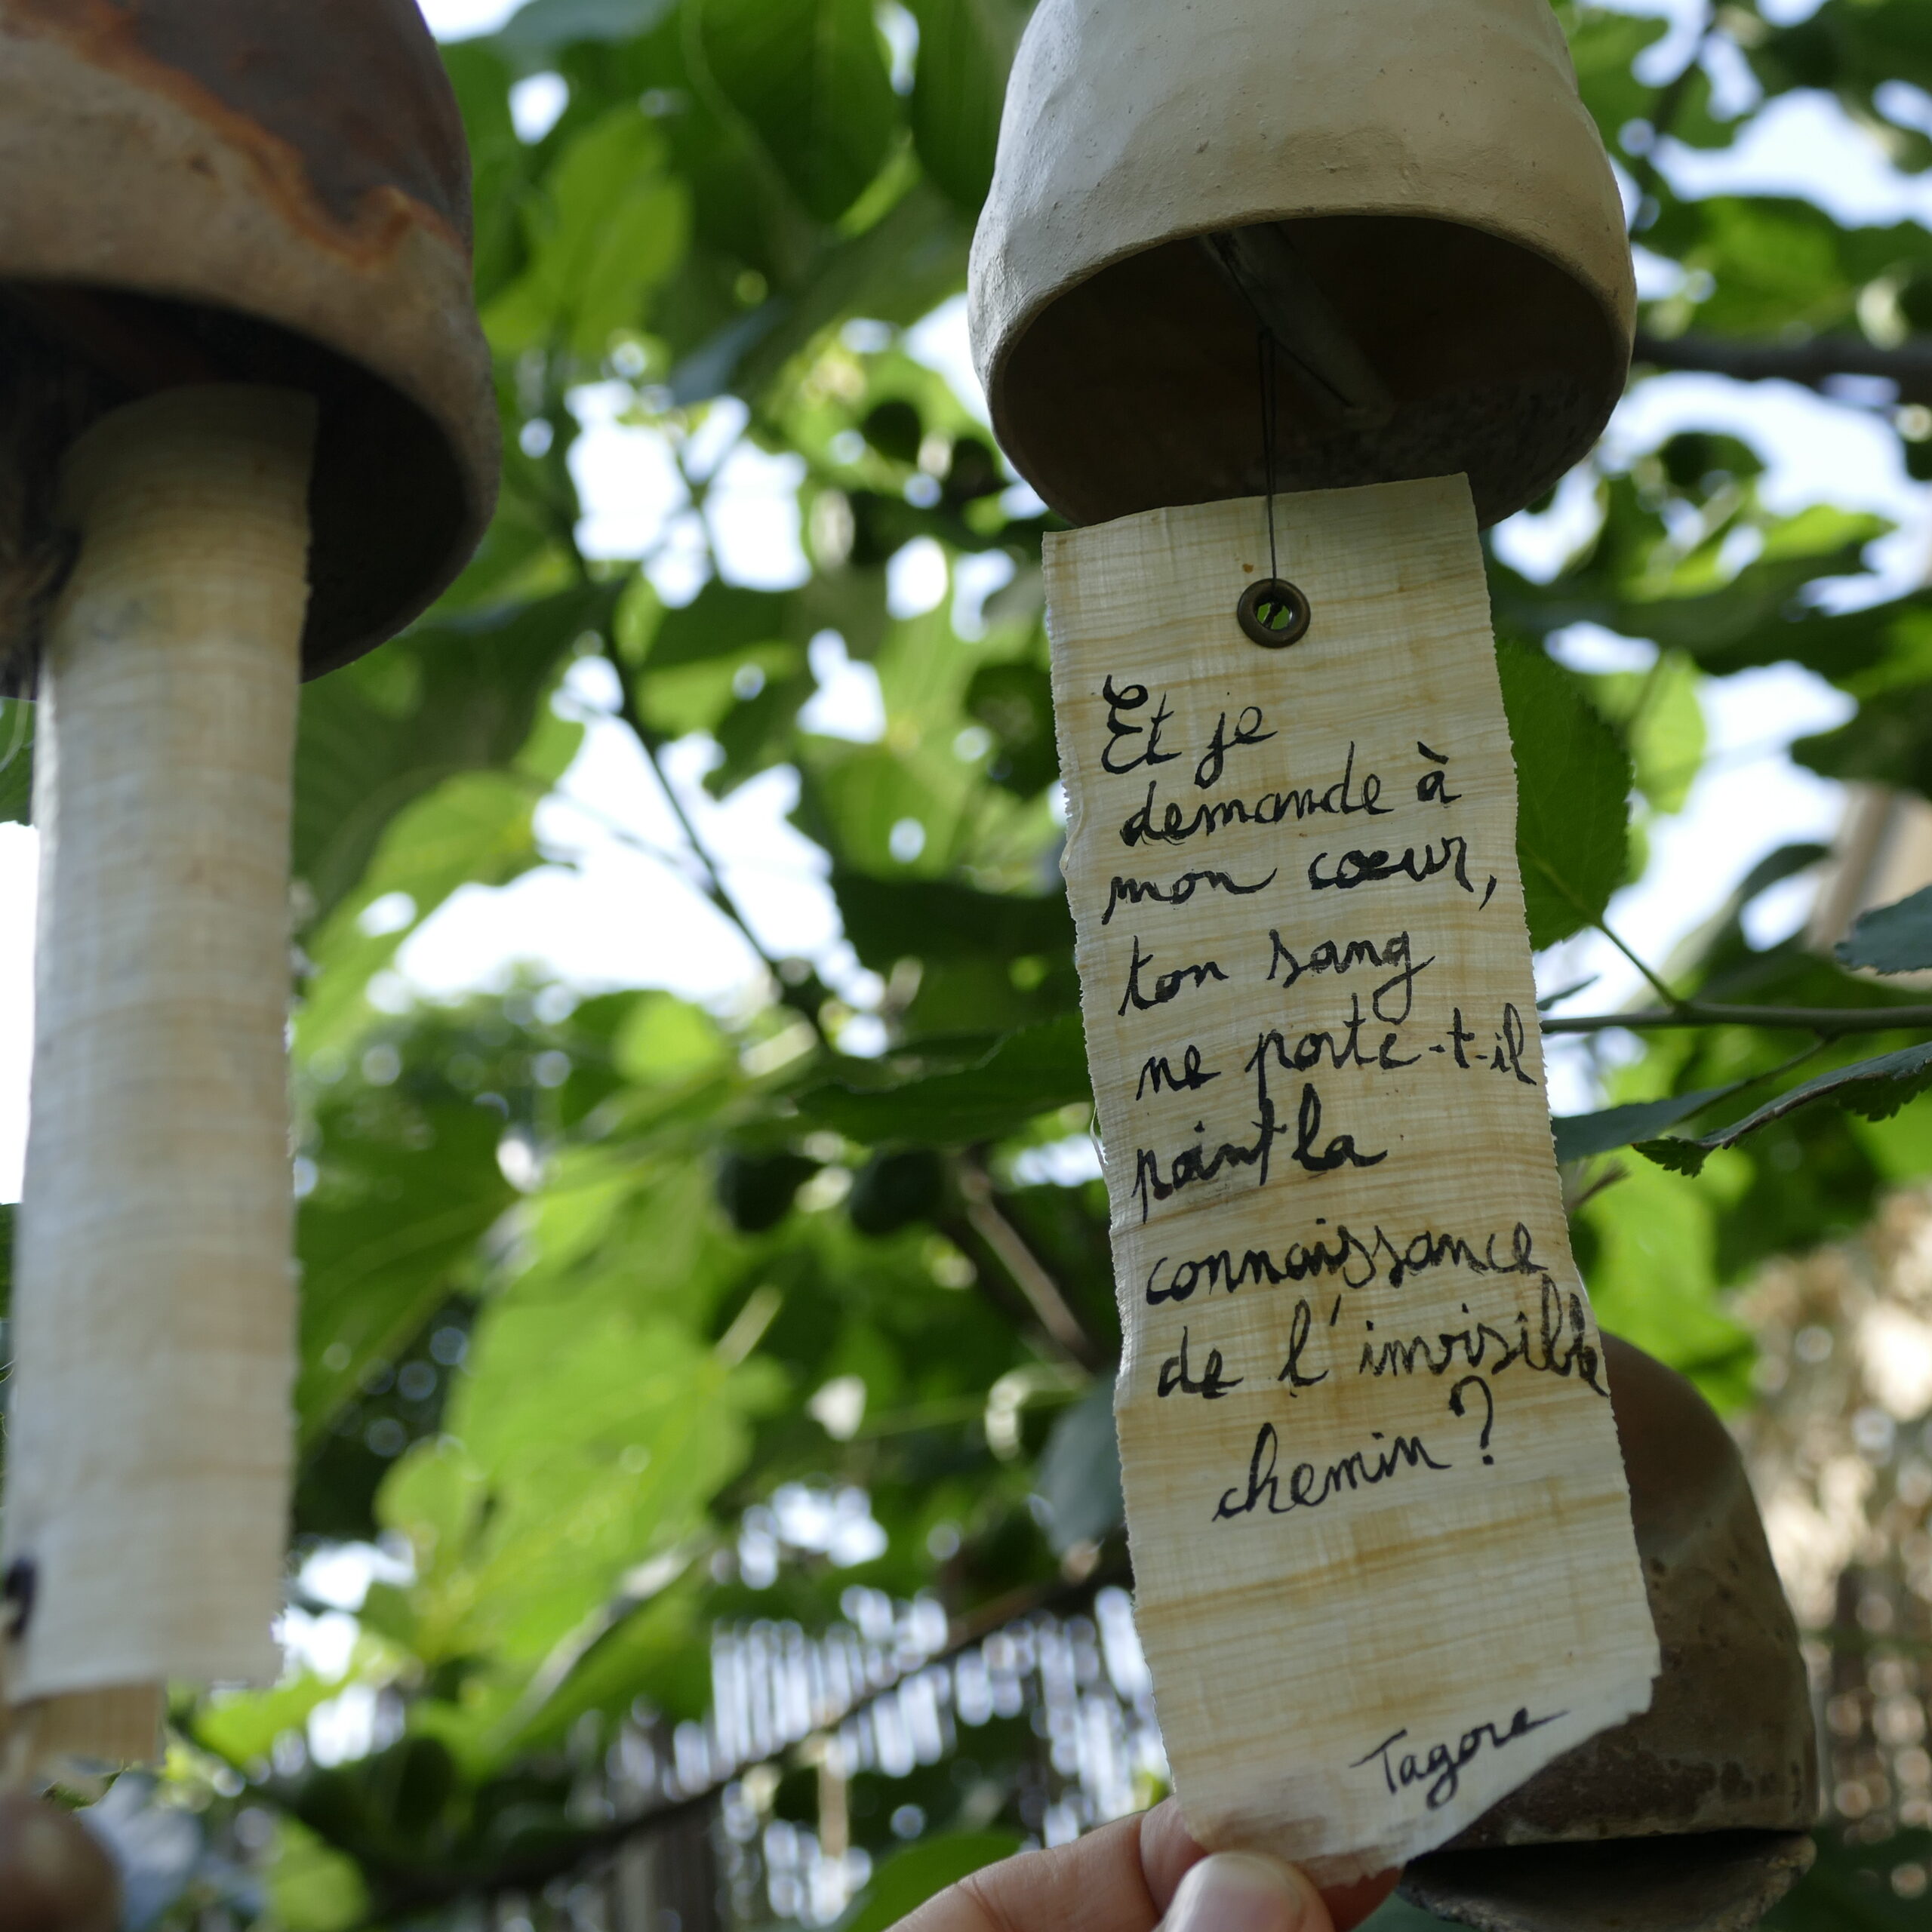 Et je
demande à
mon cœur,
ton sang
ne porte-t-il
point la
connaissance
de l'invisible
chemin ?
Tagore